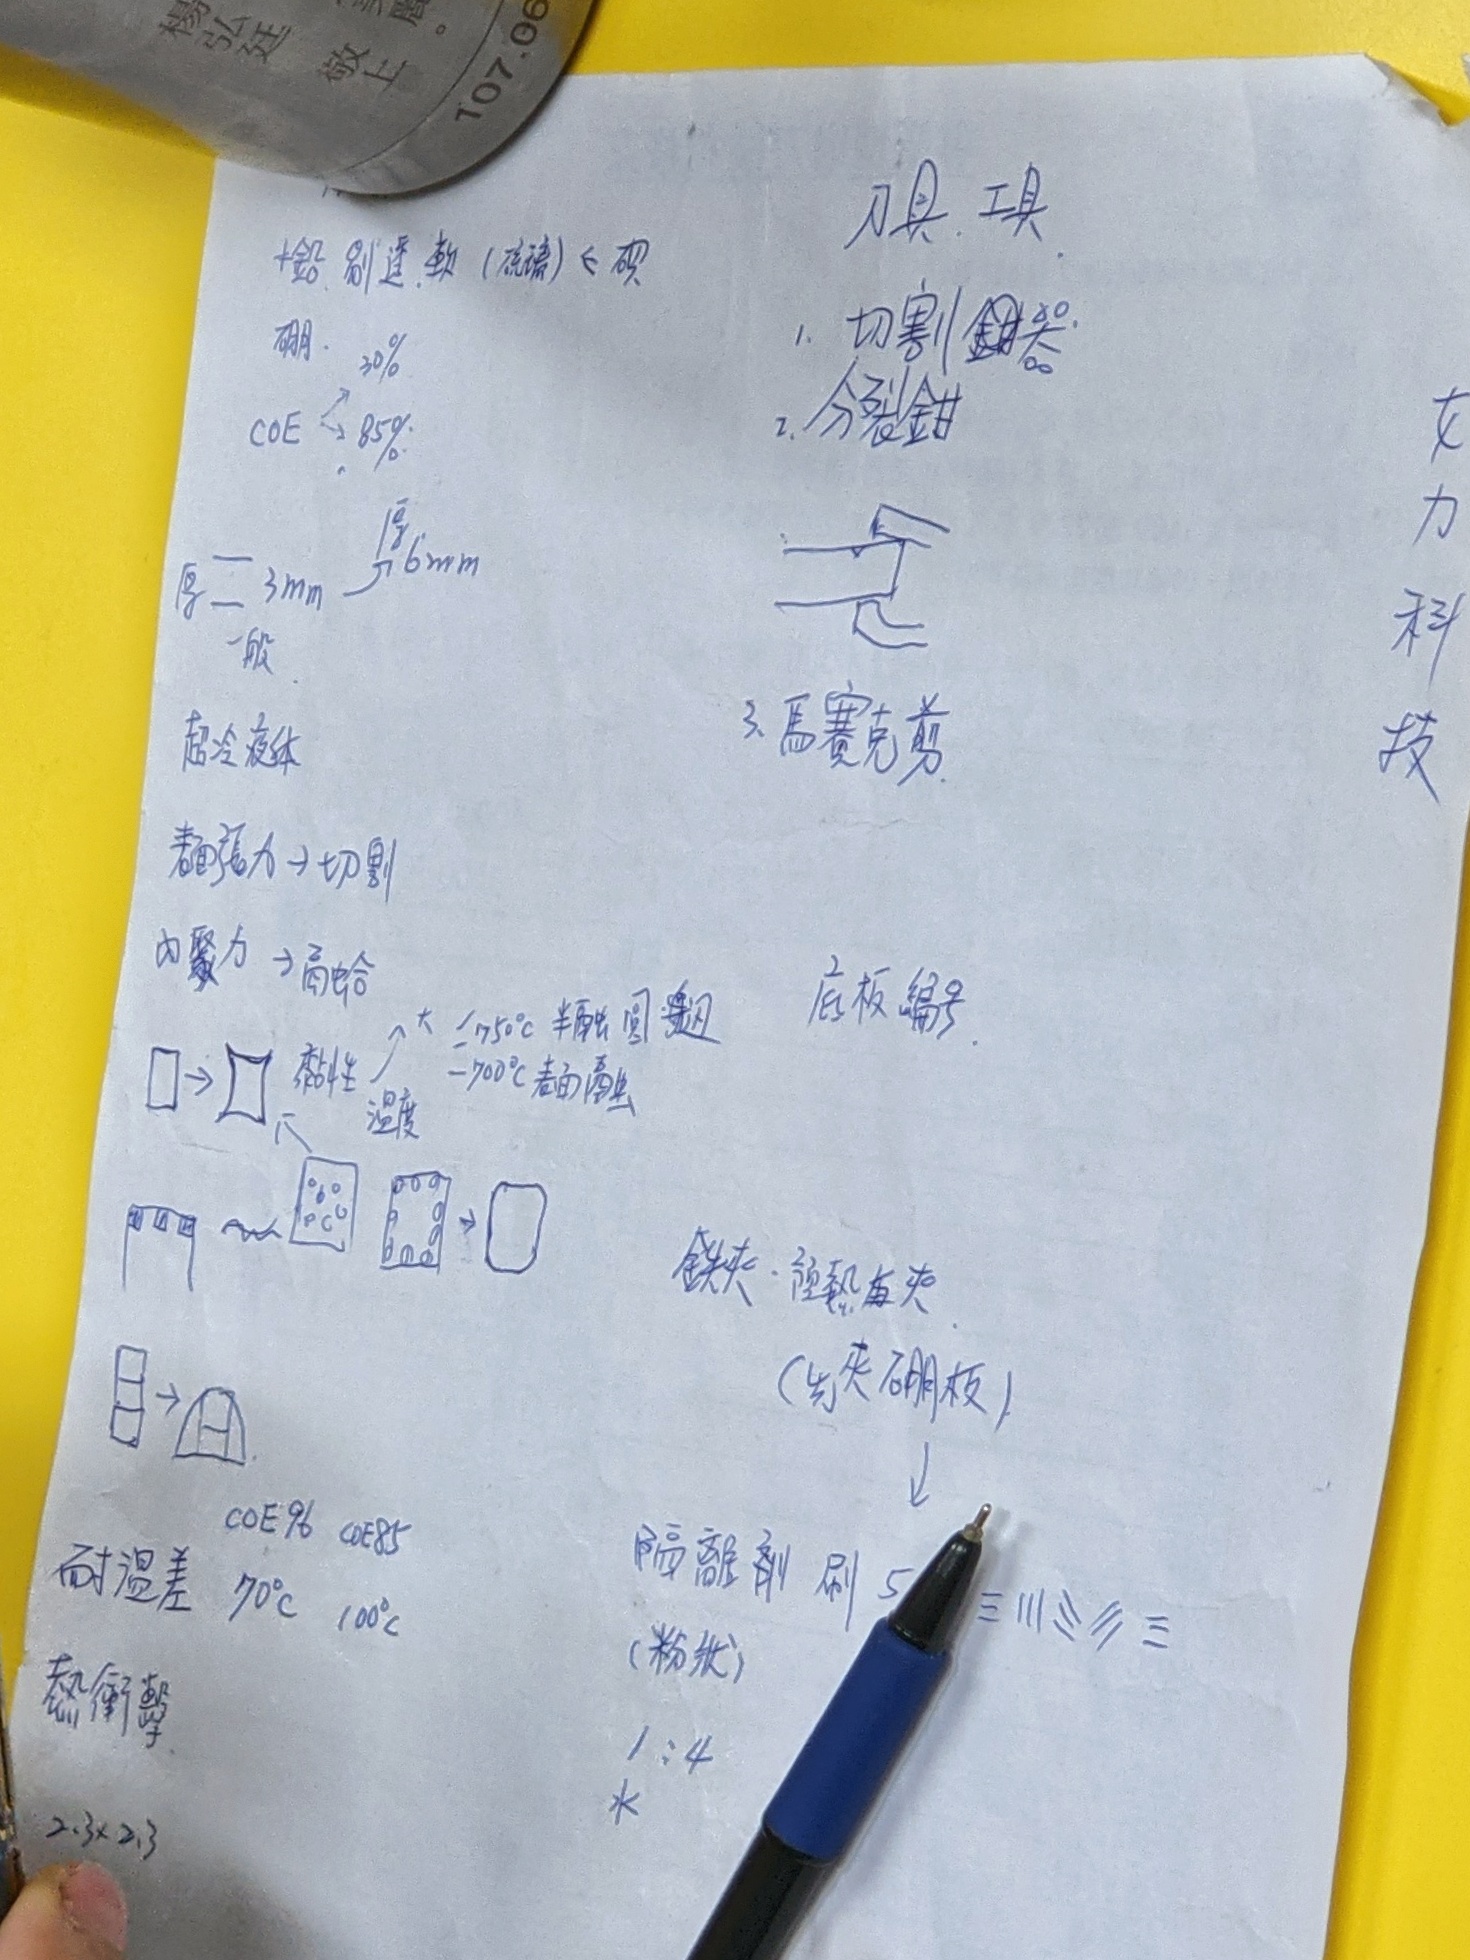 楊弘廷
敬上
107.06
+鉛 剔透 軟 (琉璃) <
硼.
30%
COE
85%
厚
6mm
厚 3mm
一般
超冷液体
表面張力→切割
內聚力→
黏性
溫度
大
750°C 半融圓
700°C 表面融
COE96 COE85
耐溫差 70°C 100°C
熱衝擊
2.3×2.3
刀具.工具.
1. 切割鉗
2. 分裂鉗
3. 馬賽克剪
底板編号.
鉄夾.
(先夾硼板)
隔離劑 刷 5
(粉狀)
1:4
水
女
力
科
技